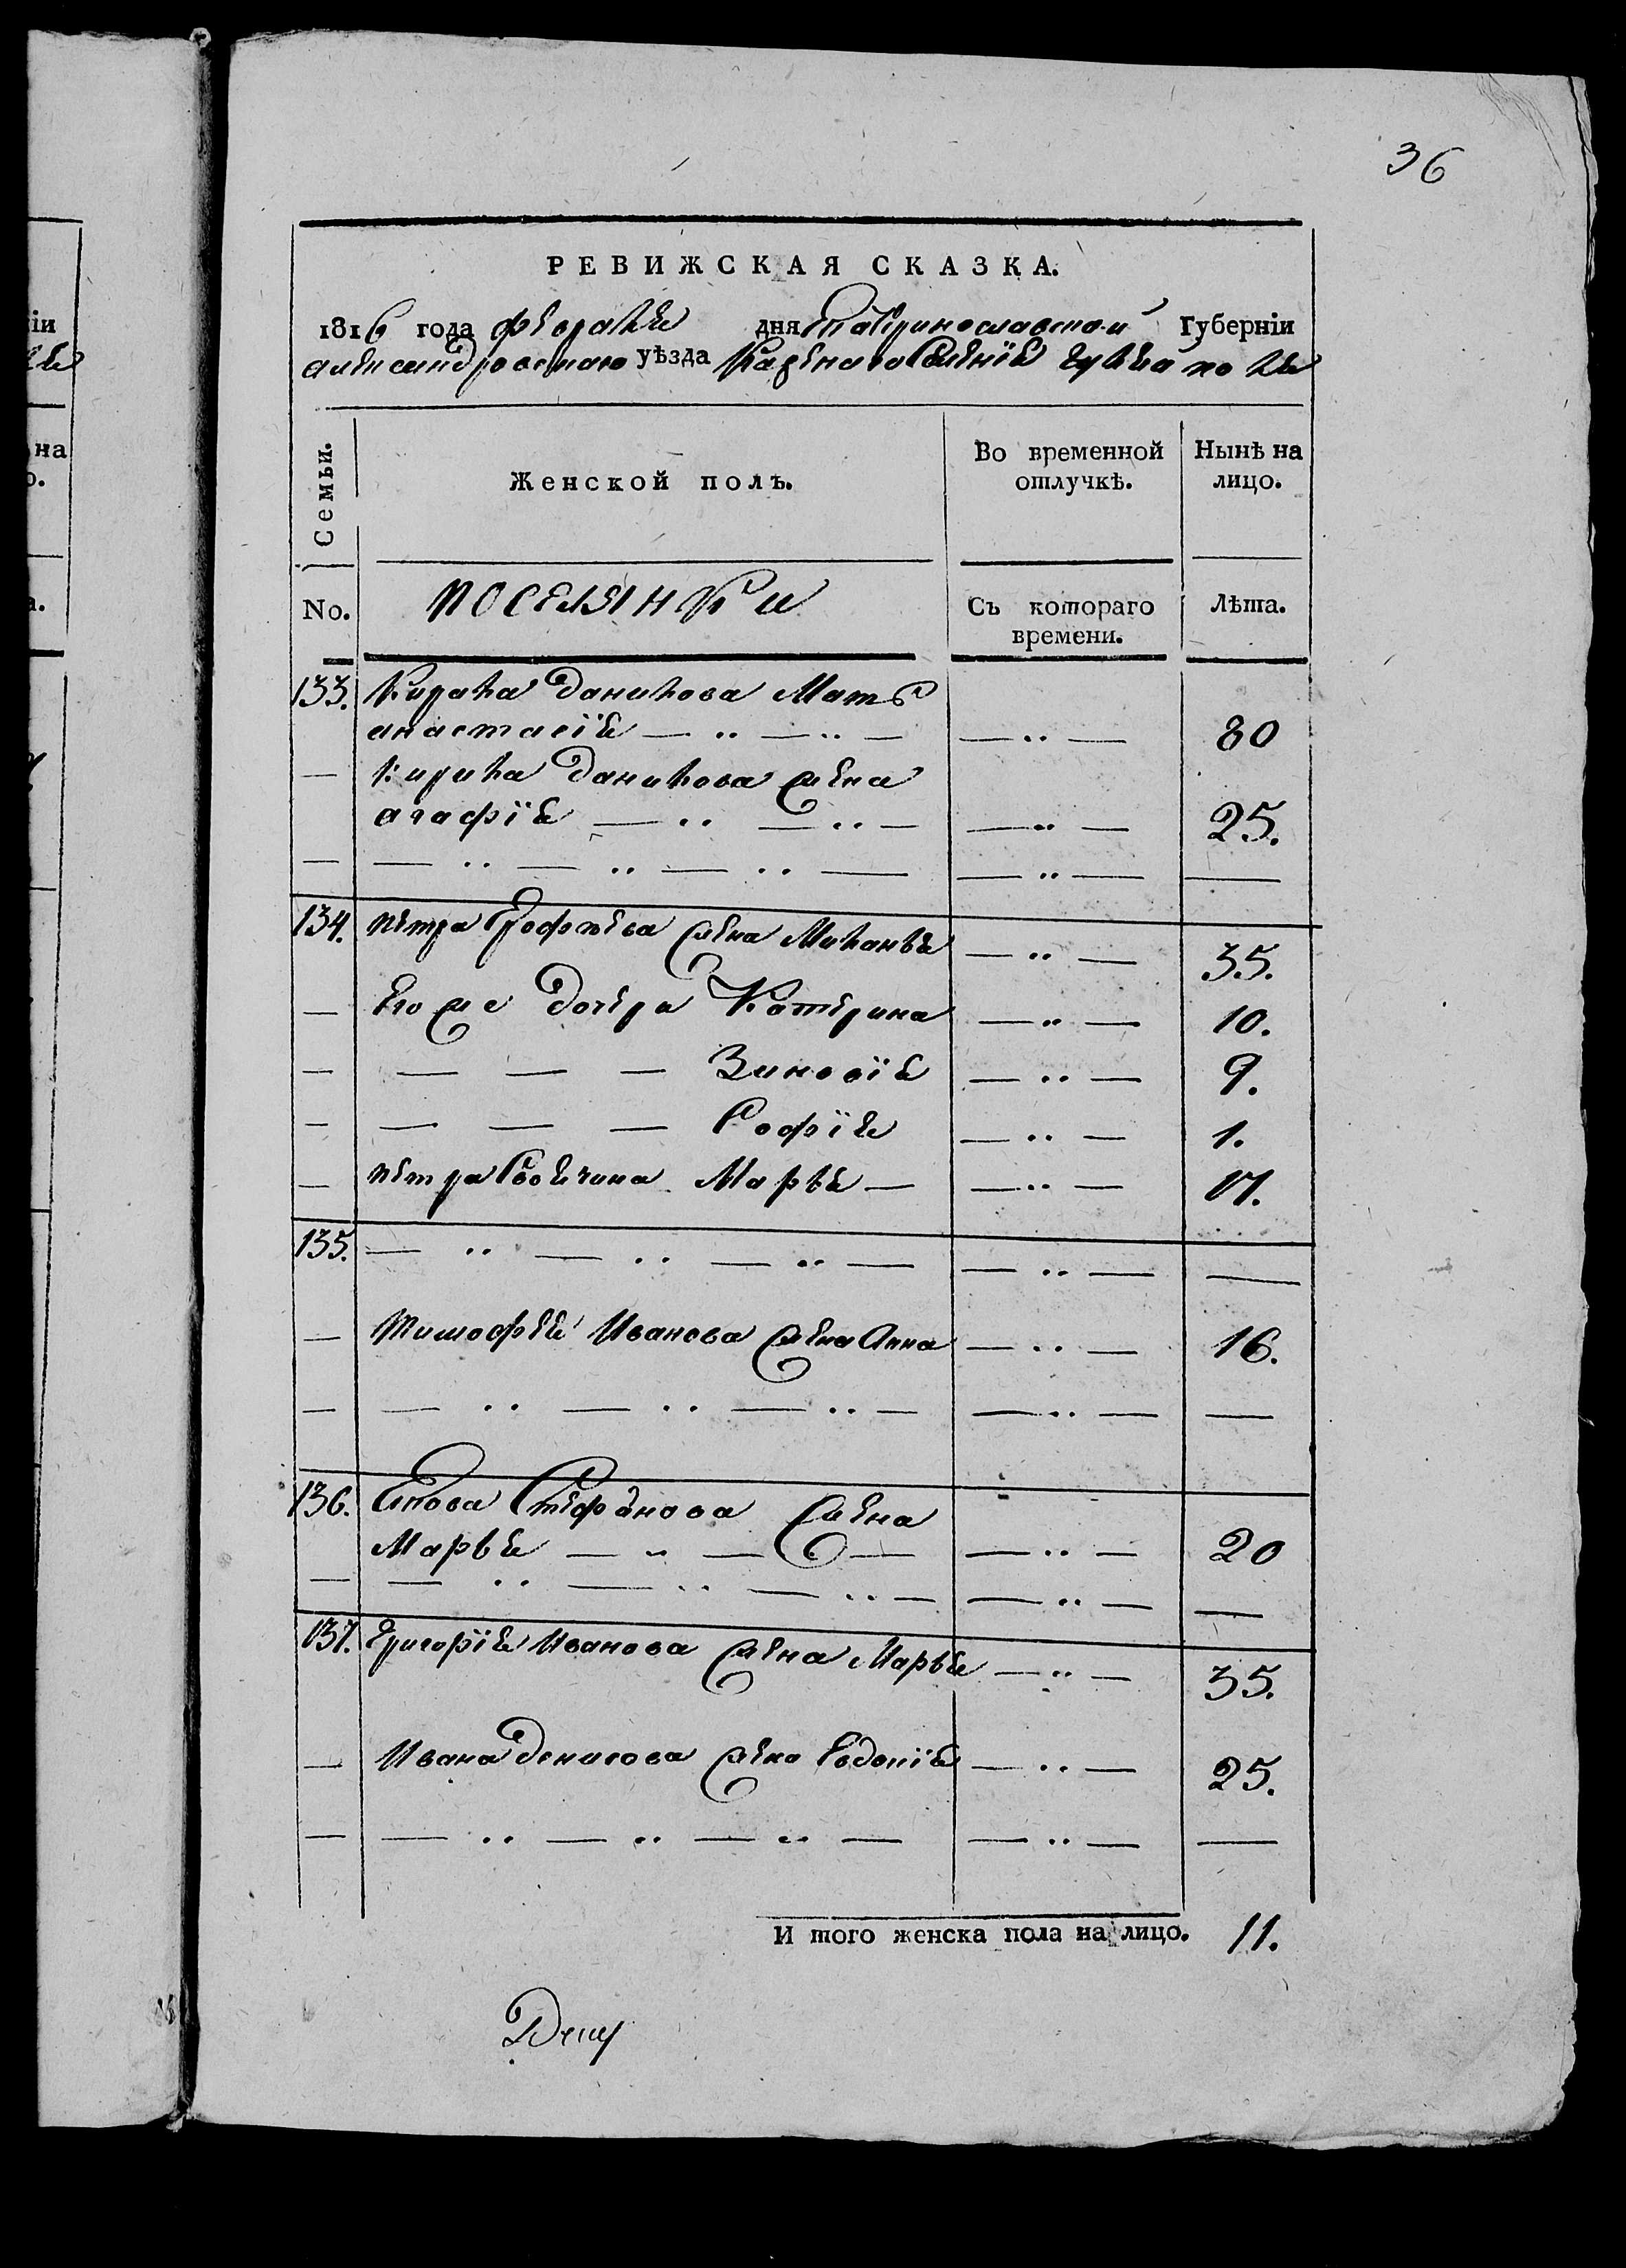 36
РЕВИЖСКАЯ СКАЗКА.
1816 года февраля дня Екатеринославской Губерніи
александровскаго уѣзда Казенаго Селенія гуляй поля
Семьи.
Женской полъ.
Во временной отлучкѣ.
Нынѣ на лицо.
No.
поселянки
Съ котораго времени.
Лѣта.
133. Кирила Данилова Мать
анастасія — .. — .. — — .. — 80
— Кирила Данилова жена
агафія — .. — .. — — .. — 25.
— — .. — .. — .. — — .. — —
134. петра Ерофѣева жена Миланья — .. — 35.
— Его же дочери Катерина — .. — 10.
— — — — Зиновія — .. — 9.
— — — — Софія — .. — 1.
— петра Марья — — .. —
135. — .. — .. — .. — — .. — —
— тимофея Иванова жена Анна — .. — 16.
— — .. — .. — .. — — .. — —
136. Стефанова жена
Марья — .. — — — .. — 20
— — .. — .. — .. — — .. — —
137. Григорія Иванова жена Марья — .. — 35.
— Ивана Денисова жена Евдокія — .. — 25.
— — .. — .. — .. — — .. — —
И того женска пола на лицо. 11.